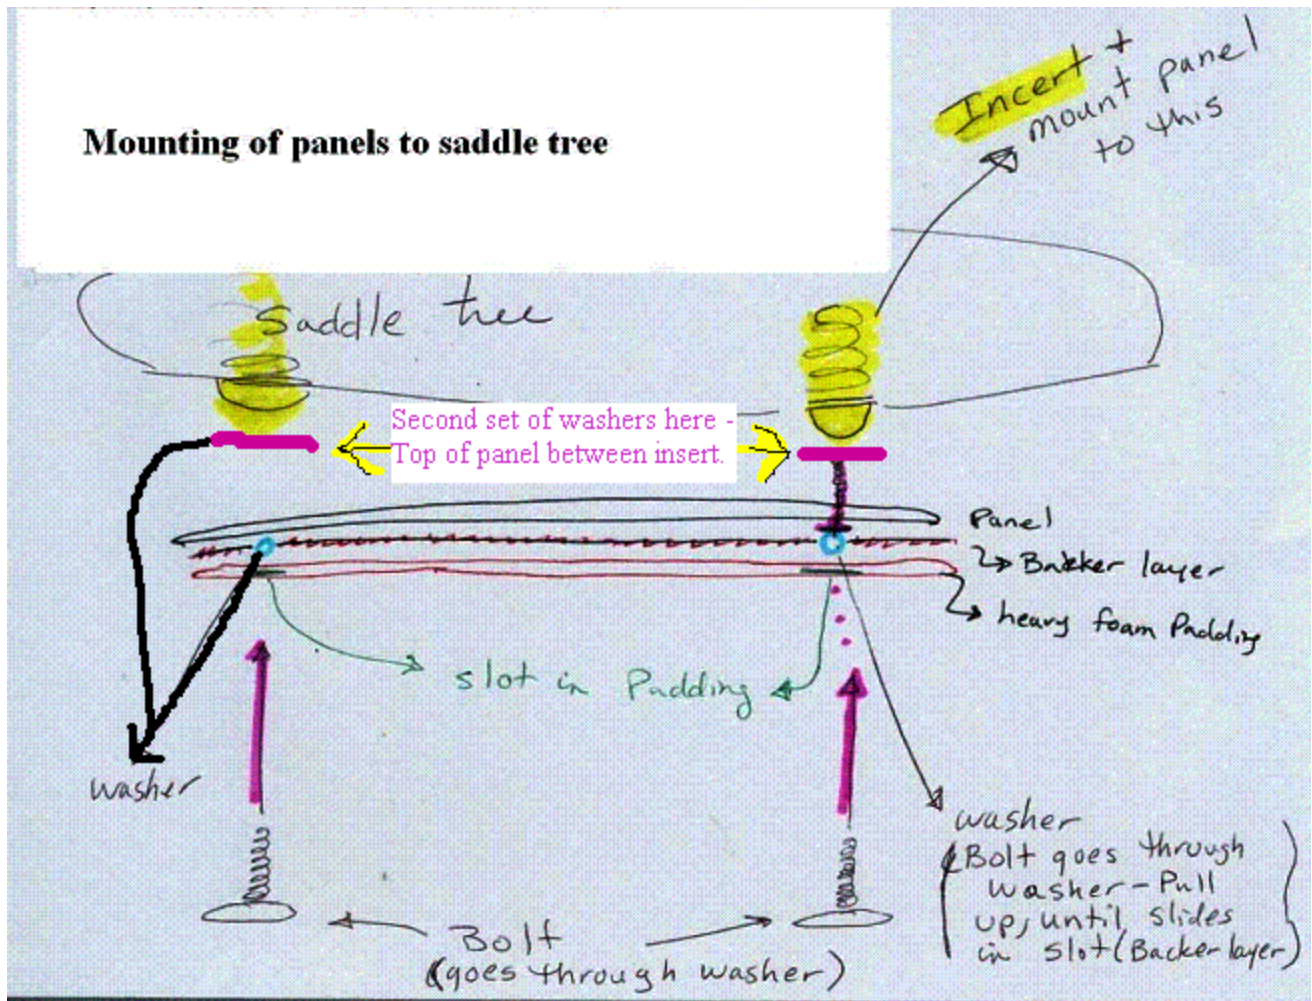 Mounting of panels to saddle tree
Incert +
mount panel
to this
Saddle tree
Second set of washers here -
Top of panel between insert.
Panel
Backer layer
heavy foam Padding
slot in Padding
washer
washer
(Bolt goes through
washer - Pull
up, until slides
in slot (Backer layer)
Bolt
(goes through washer)